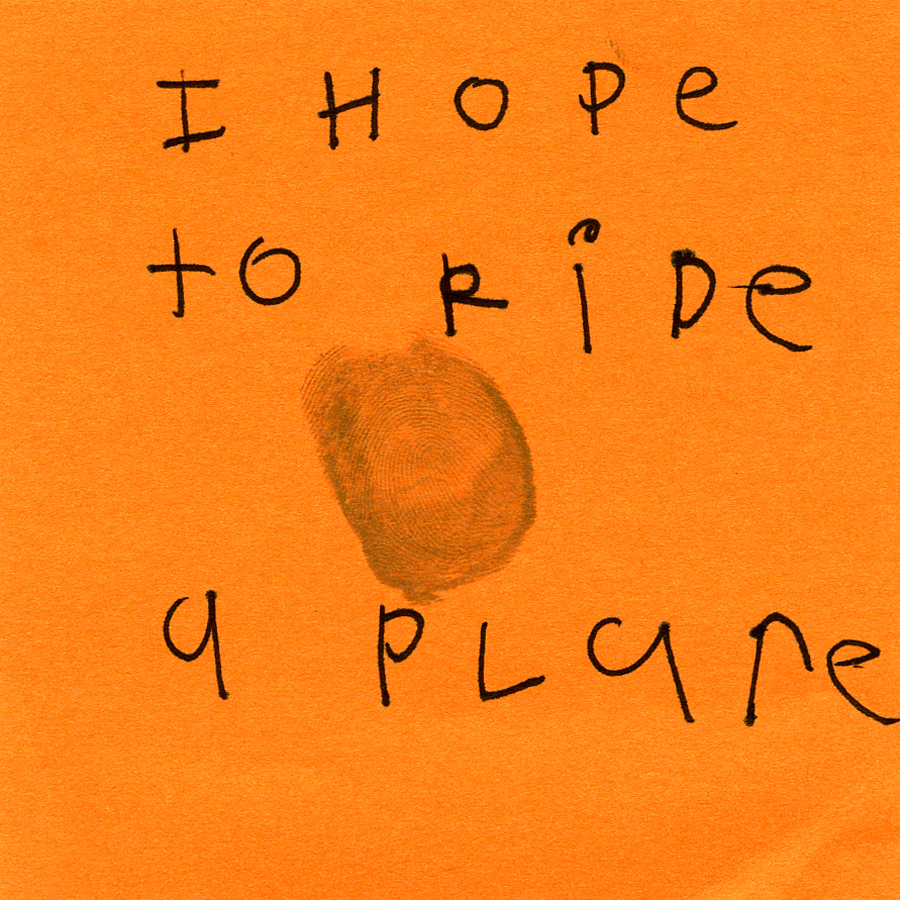 I HOPe
to RiDe
a PLane